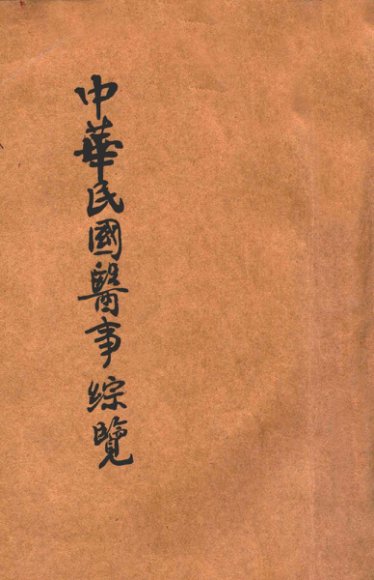 中華民國醫事綜覽